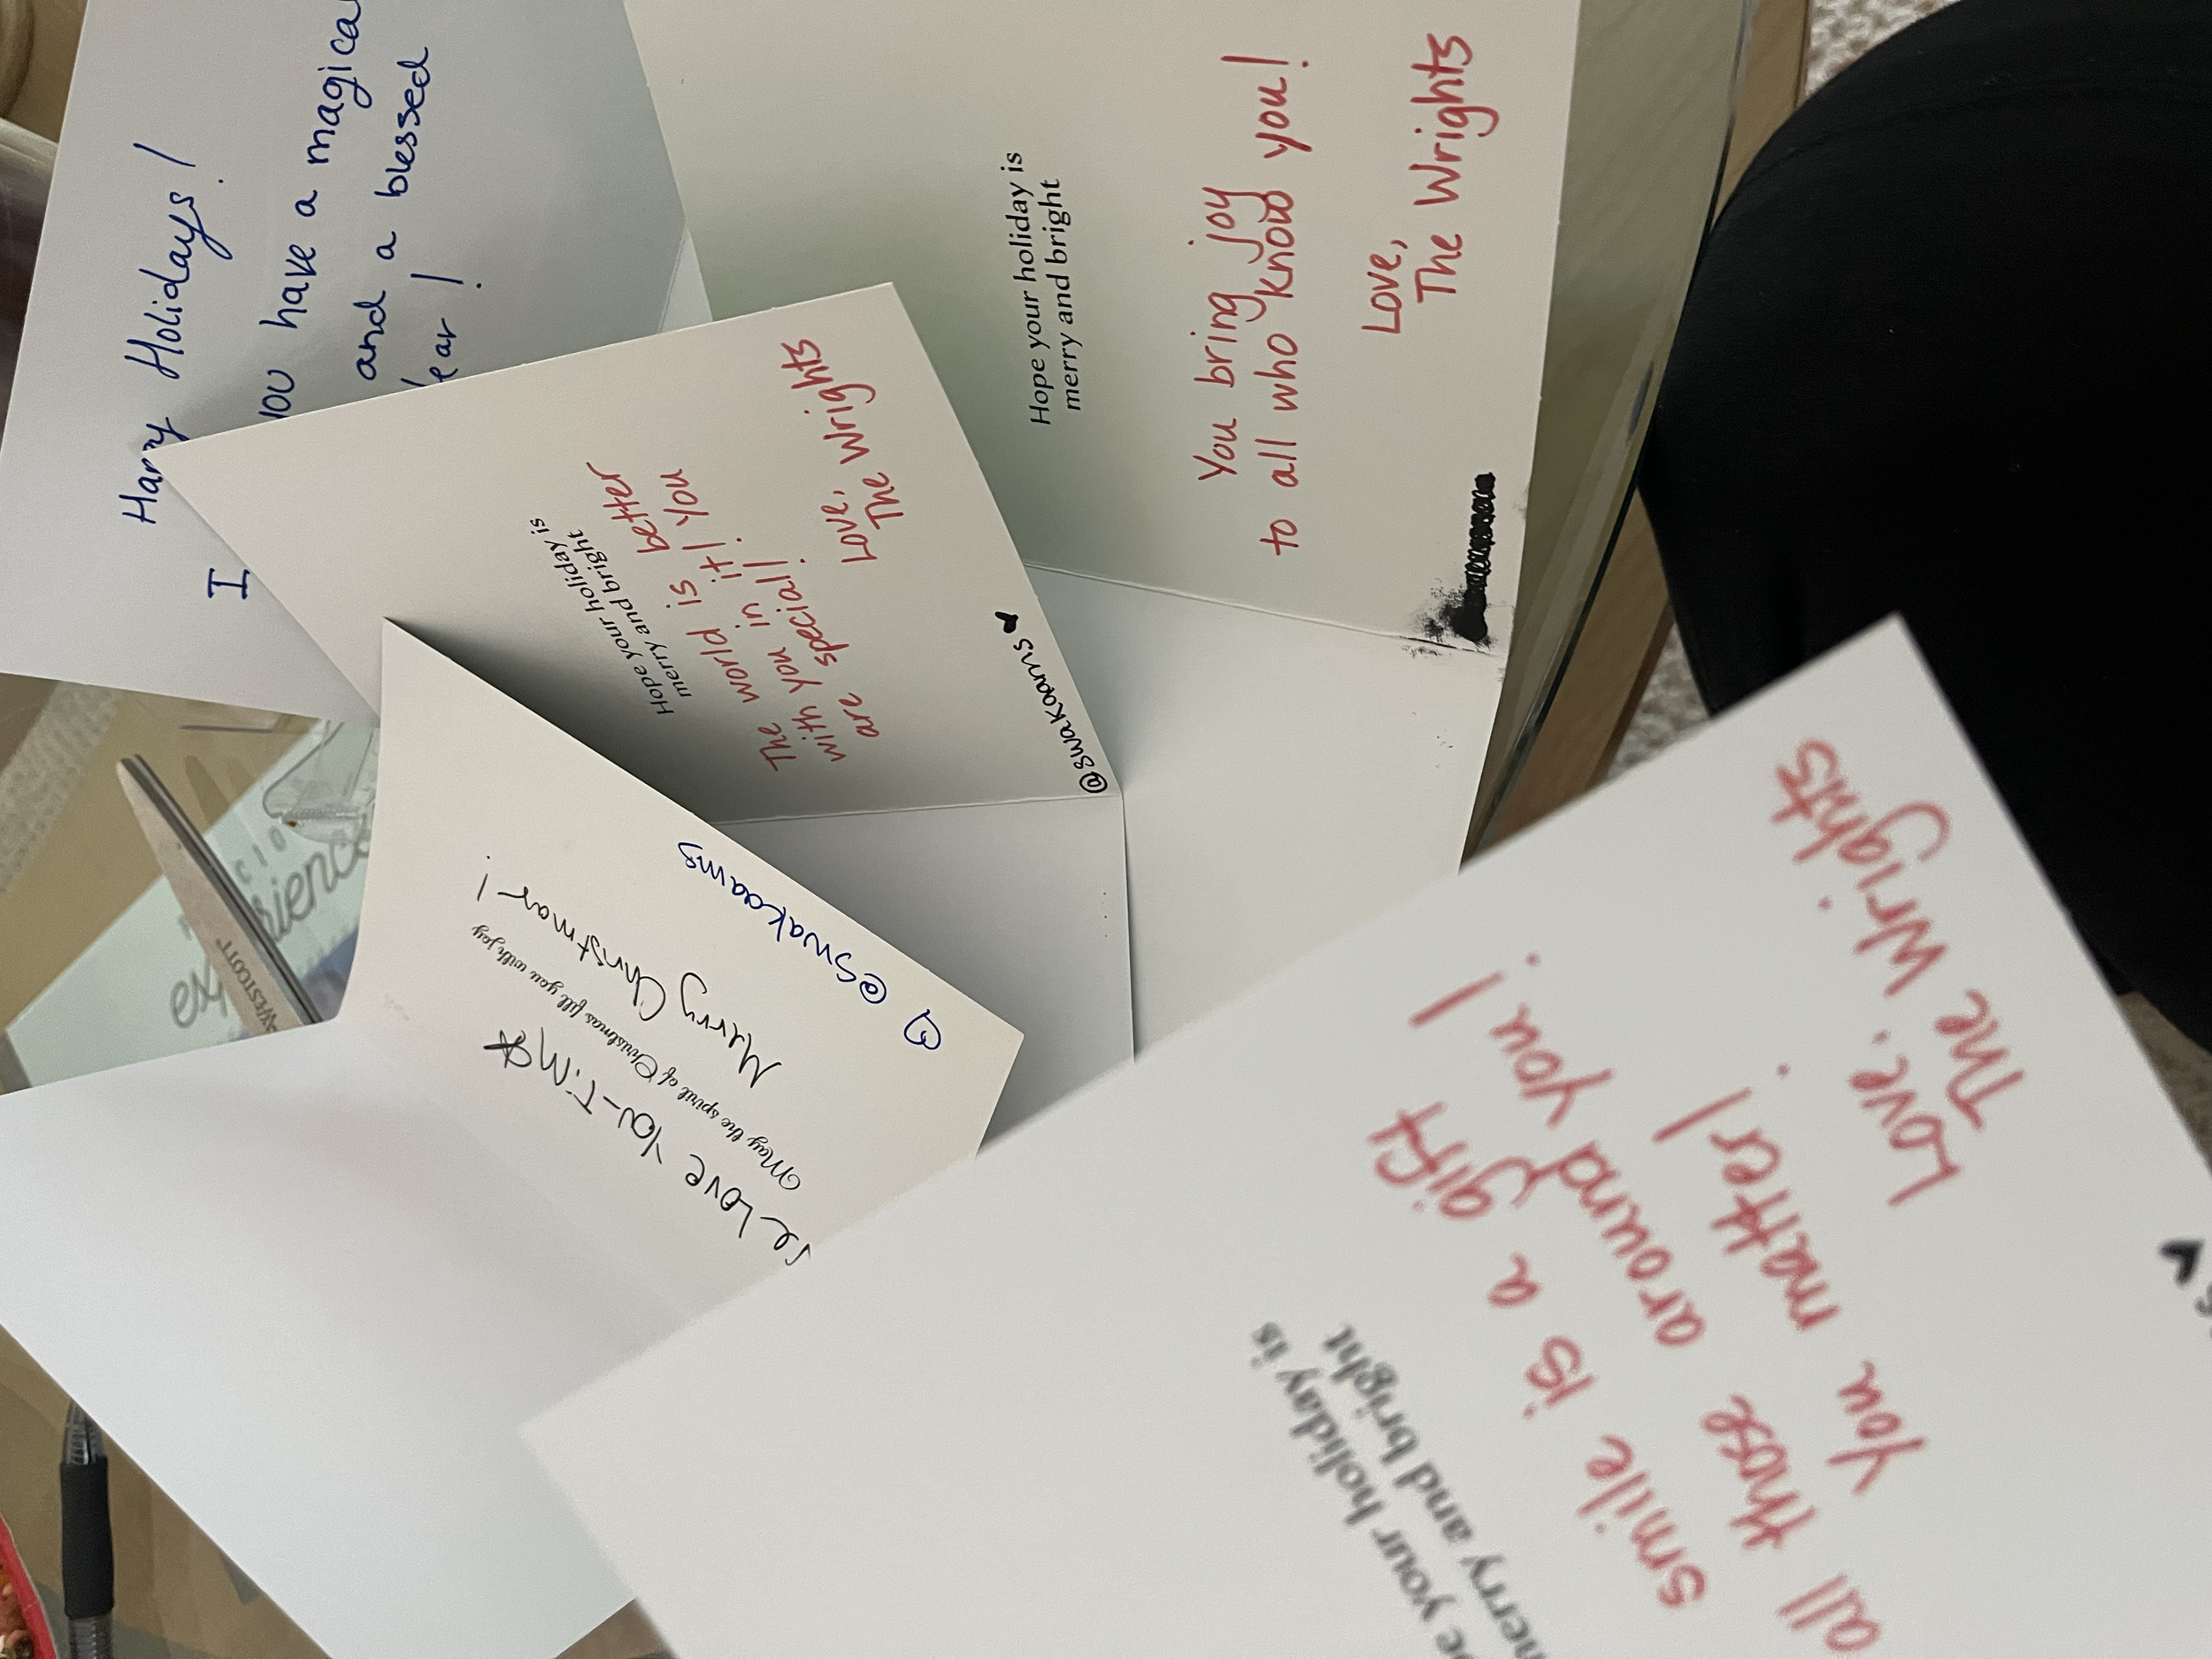 Harry Holidays!
I
have a magical
and a blessed
Hope your holiday is
merry and bright
You bring joy
to all who know you!
Love,
The Wrights
Hope your holiday is
merry and bright
The world is better
with you in it! You
are special!
Love,
The Wrights
@swakoams
Love You - T.M
May the spirit of Christmas fill you with joy
Merry Christmas!
@swakoams
your holiday is
merry and bright
smile is a gift
all those around you!
You matter!
Love,
The Wrights
WESTCOTT